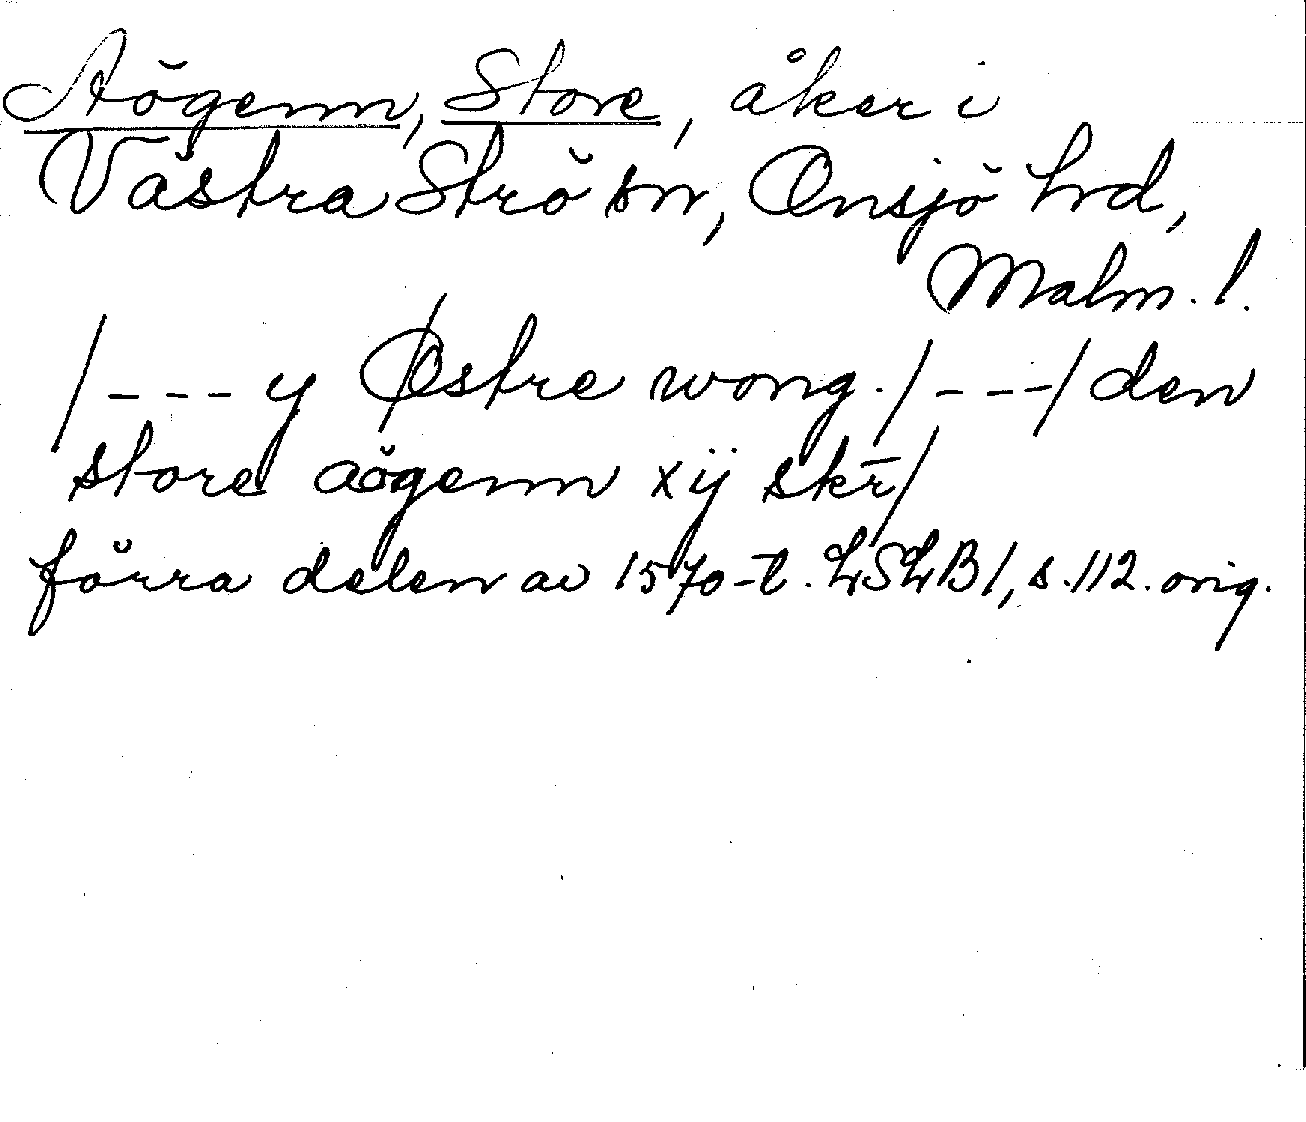 Aögenn, Store, åker i
Västra Strö sn, Onsjö hrd,
Malm. l.
/--- y Østre wong. /---/ den
store aögenn xij skr̄/
förra delen av 1570-t. LSLB 1, s. 112. orig.